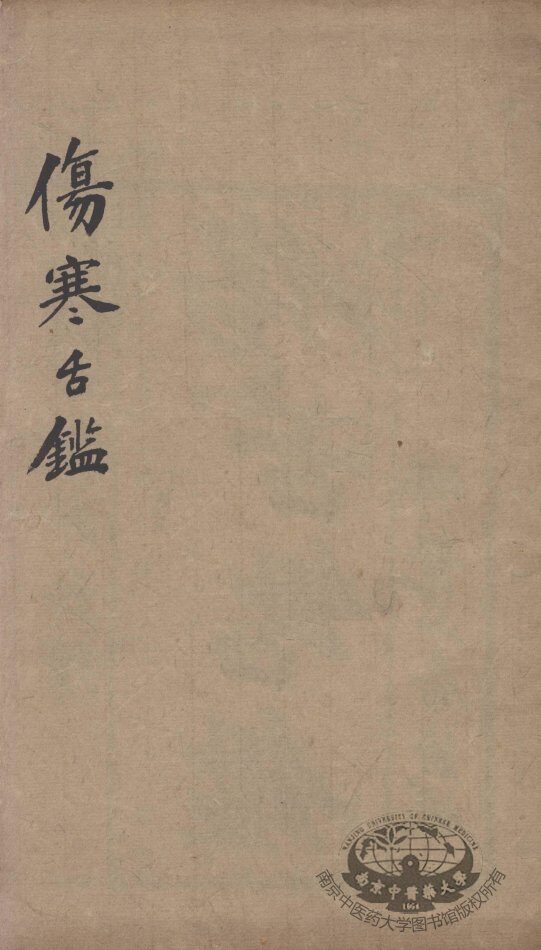 傷寒舌鑑
NANJING UNIVERSITY OF CHINESE MEDICINE
南京中醫藥大學
1954
南京中医药大学图书馆版权所有